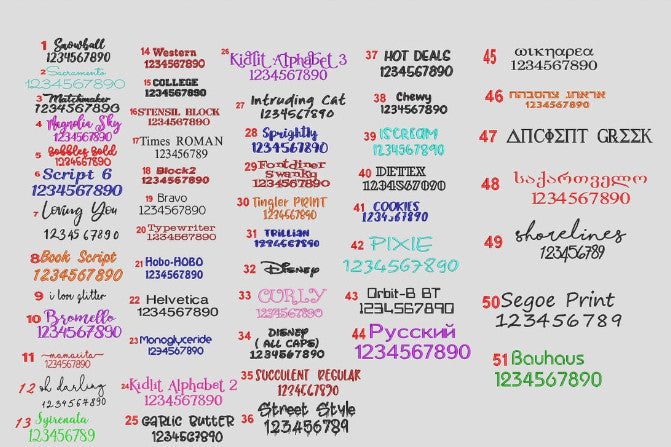 1 Snowball
1234567890
2 Sacramento
1234567890
3 Matchmaker
1234567890
4 Magnolia Sky
1234567890
5 Bobbles Bold
1234567890
6 Script 6
1234567890
7 Loving You
1234567890
8 Book Script
1234567890
9 i love glitter
10 Bromello
1234567890
11 mamasita
1234567890
12 oh darling
1234567890
13 Syirenata
123456789
14 Western
1234567890
15 COLLEGE
1234567890
16 STENSIL BLOCK
1234567890
17 Times ROMAN
123456789
18 Block2
1234567890
19 Bravo
1234567890
20 Typewriter
1234567890
21 Hobo-HOBO
1234567890
22 Helvetica
1234567890
23 Monoglyceride
1234567890
24 Kidlit Alphabet 2
25 GARLIC BUTTER
1234567890
26 Kidlit Alphabet 3
1234567890
27 Intruding Cat
1234567890
28 Sprightly
1234567890
29 Fontdiner
Swanky
1234567890
30 Tingler PRINT
1234567890
31 TRILLIAN
1234567890
32 Disney
33 CURLY
1234567890
34 DISNEY
( ALL CAPS)
1234567890
35 SUCCULENT REGULAR
1234667890
36 Street Style
1234567890
37 HOT DEALS
1234567890
38 Chewy
1234567890
39 ISCREAM
1234567890
40 DIETEX
1234567890
41 COOKIES
1234567890
42 PIXIE
1234567890
43 Orbit-B BT
1234567890
44 Русский
1234567890
45 ωικηαρεα
1234567890
46
1234567890
47 ΔΠCIΕΠT GRΣΣK
48 საქართველო
1234567890
49 shorelines
123456789
50 Segoe Print
123456789
51 Bauhaus
1234567890